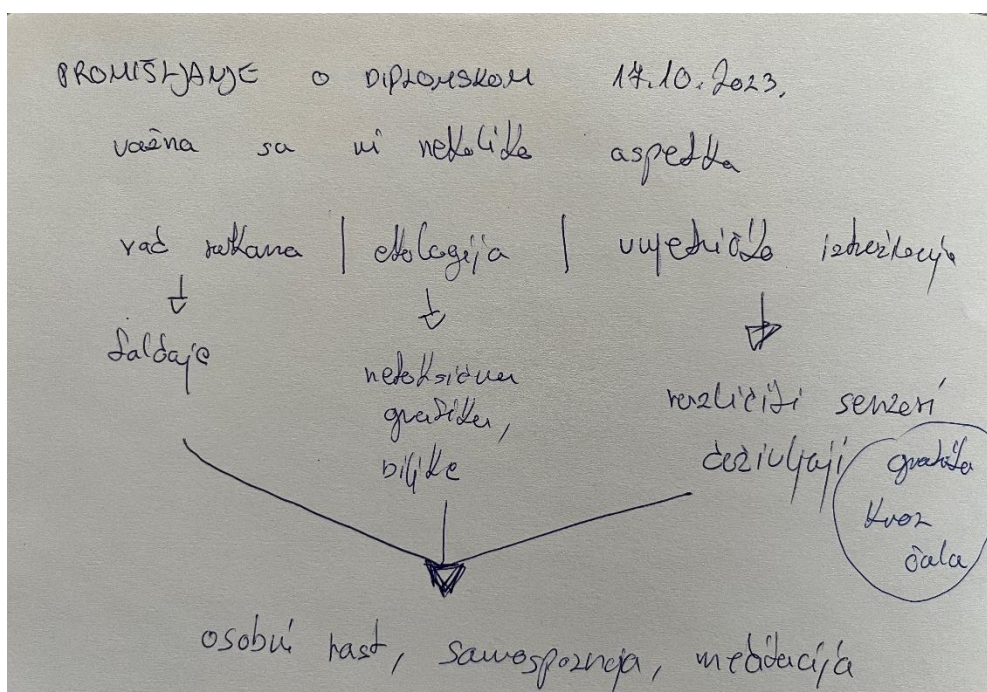 PROMIŠLJANJE O DIPLOMSKOM 17.10.2023.
važna su mi nekoliko aspekta
rad rukama | ekologija | umjetničko istraživanje
netoksična
grafika,
biljke
različiti senzorni
doživljaji
grafika
kroz
osobni rast, samospoznaja, meditacija